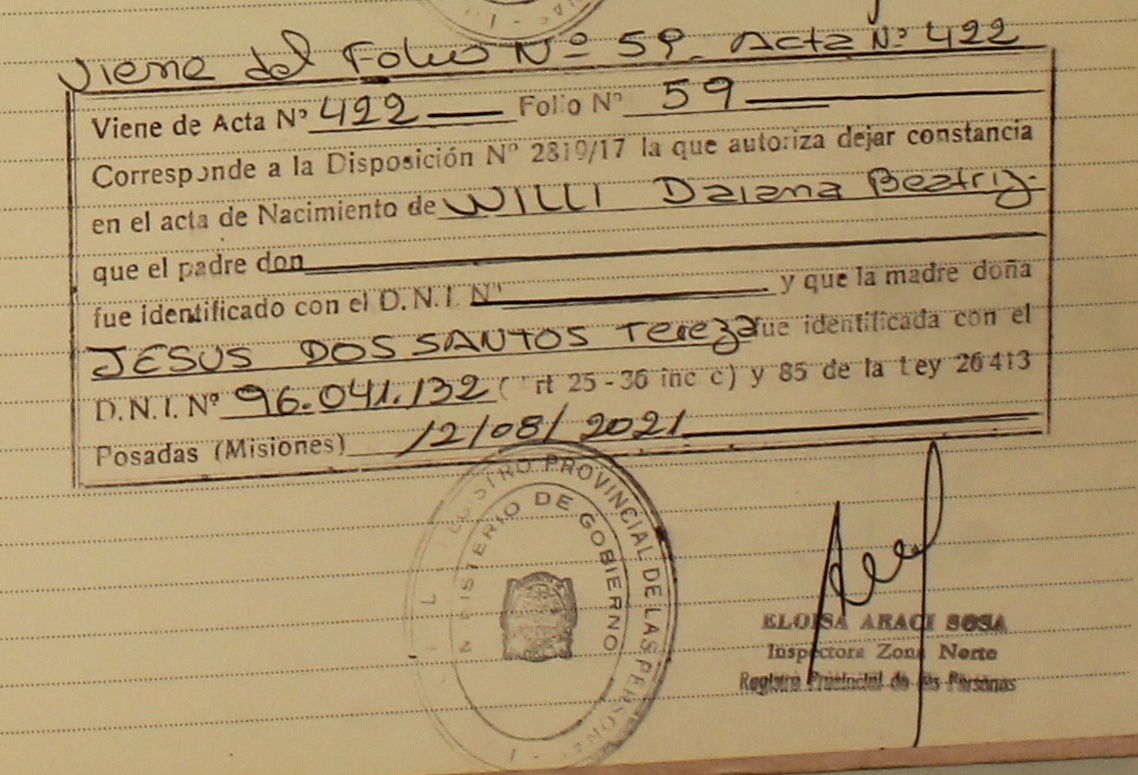 Viene del Folio Nº 59. Acta Nº 422
Viene de Acta Nº 422 Folio Nº 59
Corresponde a la Disposición Nº 2819/17 la que autoriza dejar constancia
en el acta de Nacimiento de WILLI Daiana Beatriz.
que el padre don
fue identificado con el D.N.I. Nº y que la madre doña
JESUS DOS SANTOS Tereza fue identificada con el
D.N.I. Nº 96.041.132 ( rt 25 - 36 inc c) y 85 de la Ley 26413
Posadas (Misiones) 12/08/2021
REGISTRO PROVINCIAL DE LAS PERSONAS
MINISTERIO DE GOBIERNO
ELOISA ARACI SOSA
Inspectora Zona Norte
Registro Provincial de las Personas